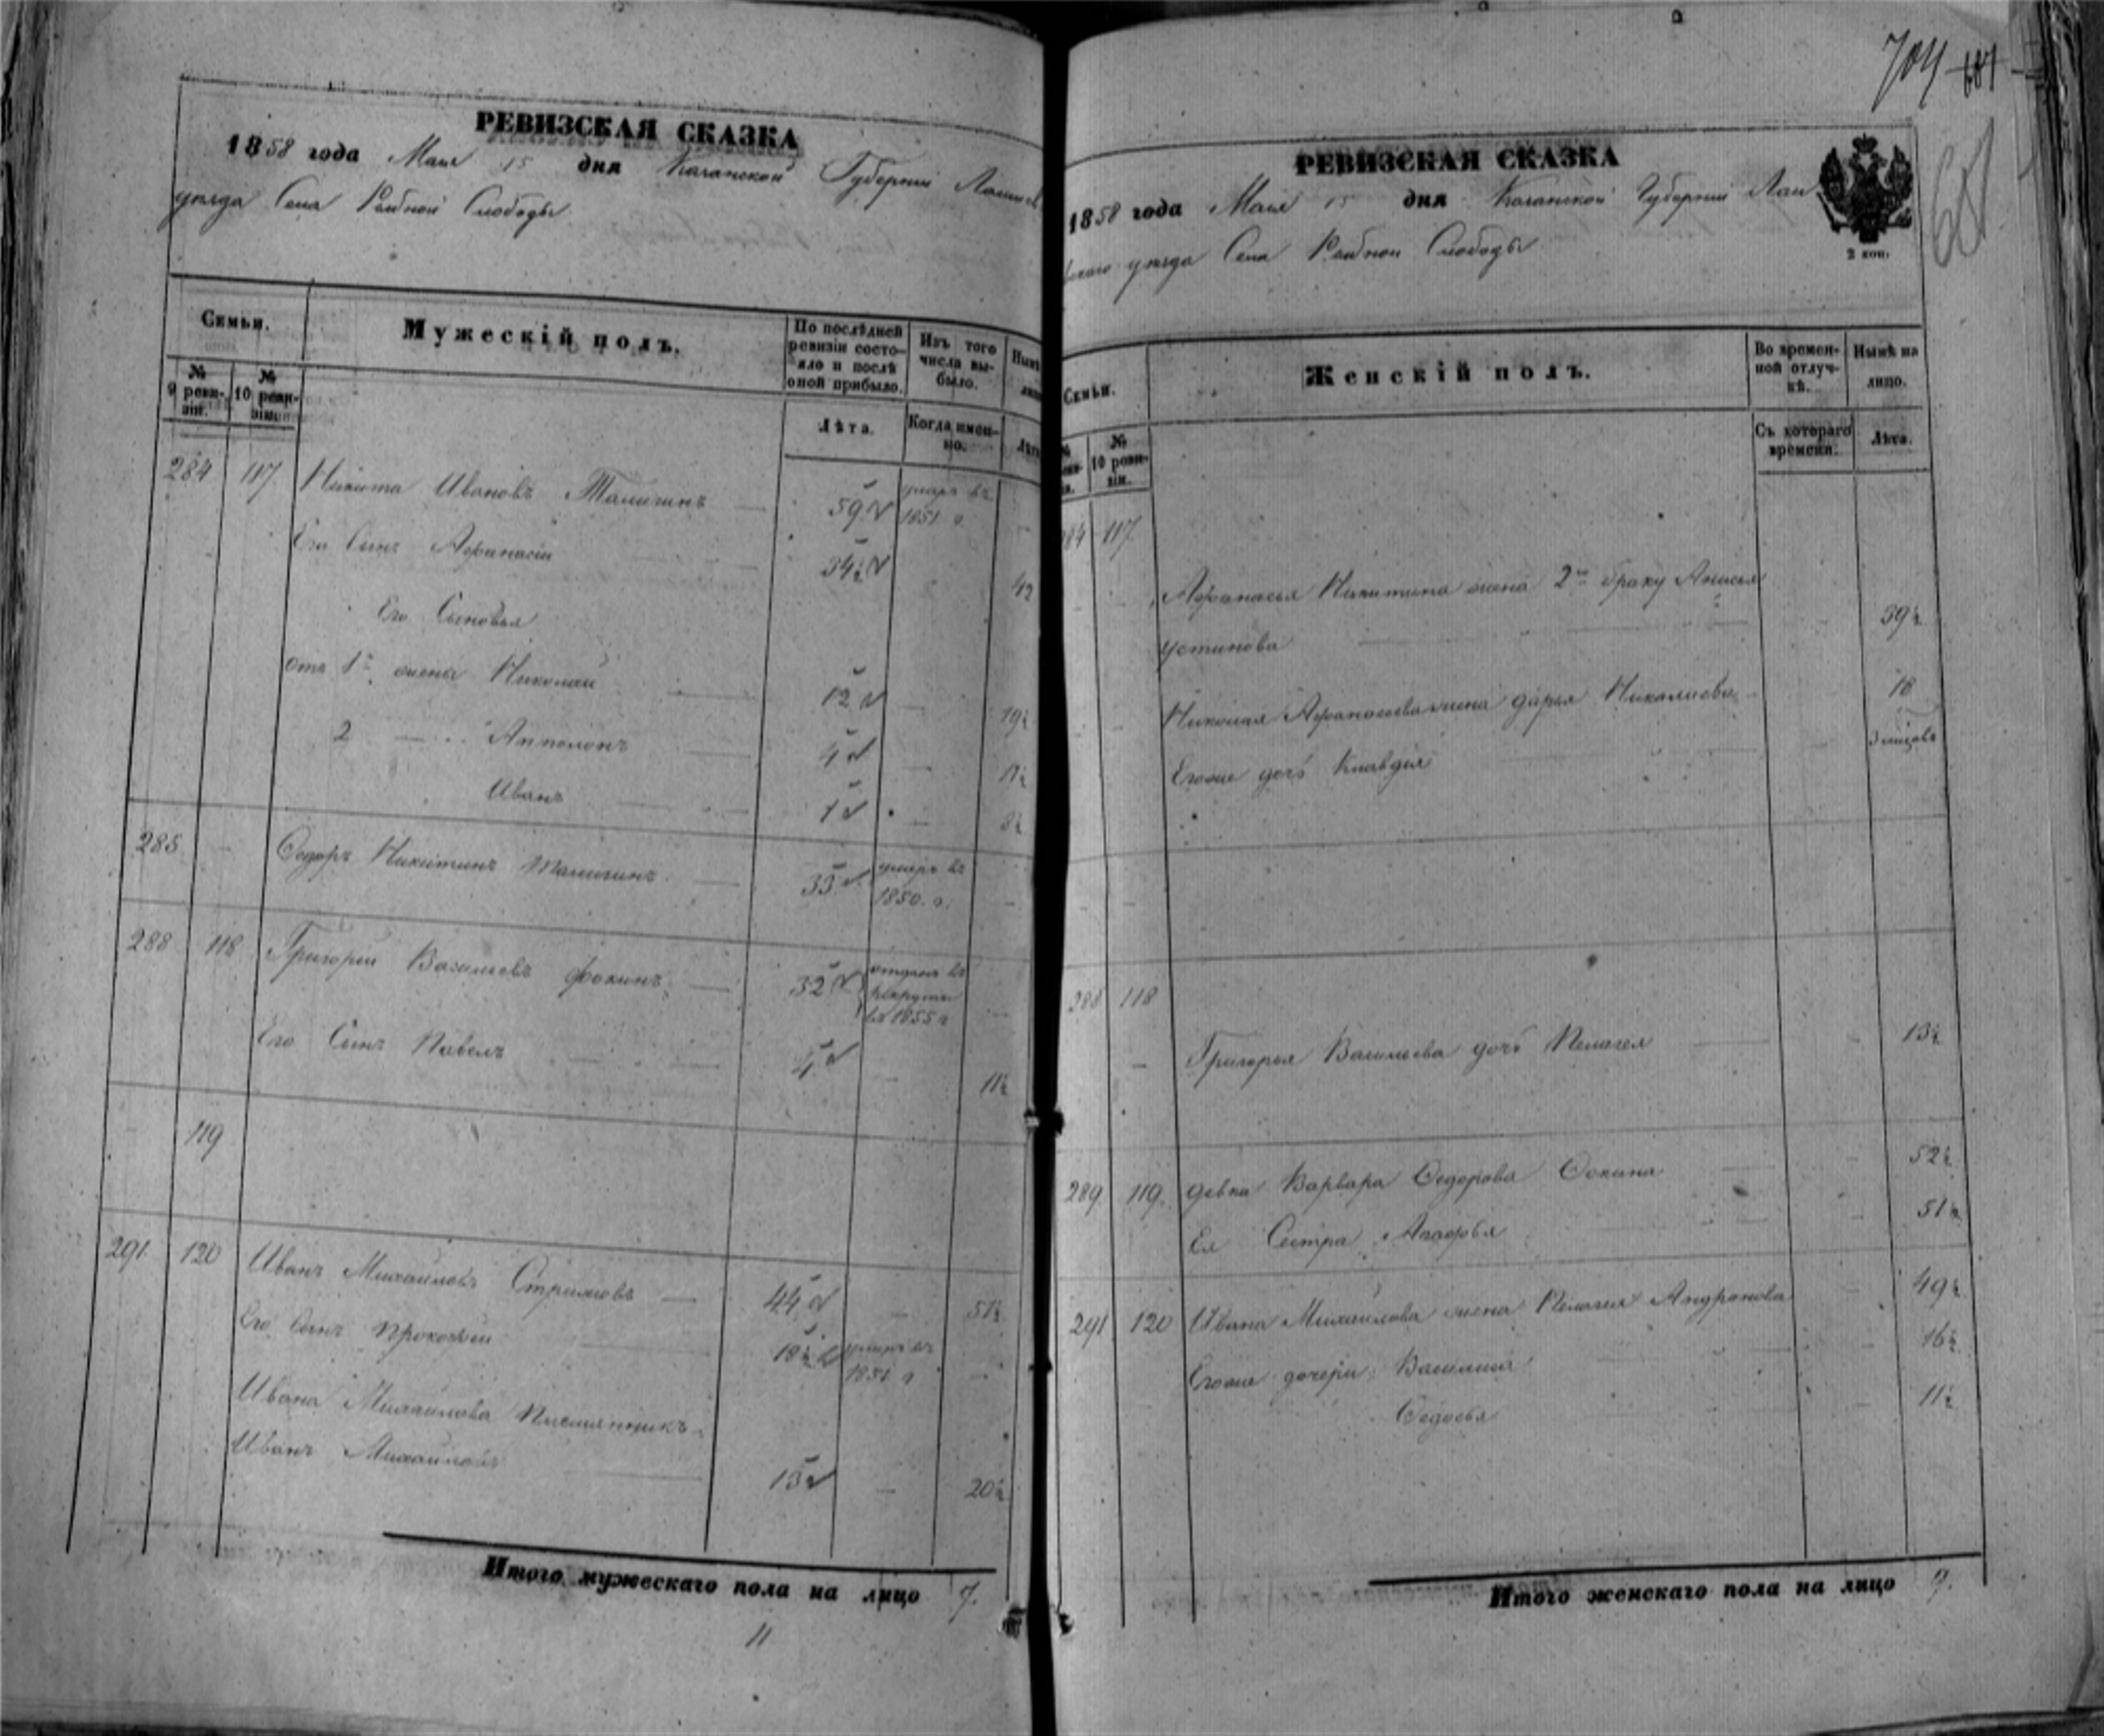 704 681
681
РЕВИЗСКАЯ СКАЗКА
1858 года Мая 15 дня Казанской Губерніи Лаишев
уезда Села Рыбной Слободы
Семьи.
Мужескій полъ.
По послѣдней ревизіи состояло и послѣ оной прибыло.
Изъ того числа выбыло.
№ 9 ревизіи.
№ 10 ревизіи.
Лѣта.
Когда именно.
284 117 Никита Ивановъ 59 умеръ въ 1851 г.
Его Сынъ Афанасіи 34½ 42
Его Сыновья
отъ 1й жены Николаи 12 19½
2 Апполонъ 4 11½
Иванъ 1 8½
285 Федоръ Никитинъ 33 умеръ въ 1850 г.
288 118 Григореи Васильевъ Фокинъ 32 отданъ въ рекруты въ 1855 г
Его Сынъ Павелъ 4 11½
119
291 120 Иванъ Михаиловъ 44 51½
Его Сынъ Прокофеи 18½ умеръ въ 1851 г
Ивана Михаилова Племянникъ
Иванъ Михаиловъ 13 20½
Итого мужескаго пола на лицо 7.
11
РЕВИЗСКАЯ СКАЗКА
1858 года Мая 15 дня Казанской Губерніи Лаи
уезда Села Рыбной Слободы
2 коп.
Семьи.
Женскій полъ.
Во временной отлучкѣ.
Нынѣ на лицо.
№ 10 ревизіи.
Съ котораго времени.
Лѣта.
84 117
Афанасья Никитина жена 2го браку Анисья
Устинова 39½
Николая Афанасьева жена Дарья 18
Егоже дочь Клавдия
288 118
Григорья Васильева дочь Пелагея 13½
289 119. девка Варвара Федорова Фокина 52½
Ея Сестра Агафья 51½
291 120 Ивана Михаилова жена Пелагея Андронова 49½
Егоже дочери: Василиса 16½
Федосья 11½
Итого женскаго пола на лицо 9.